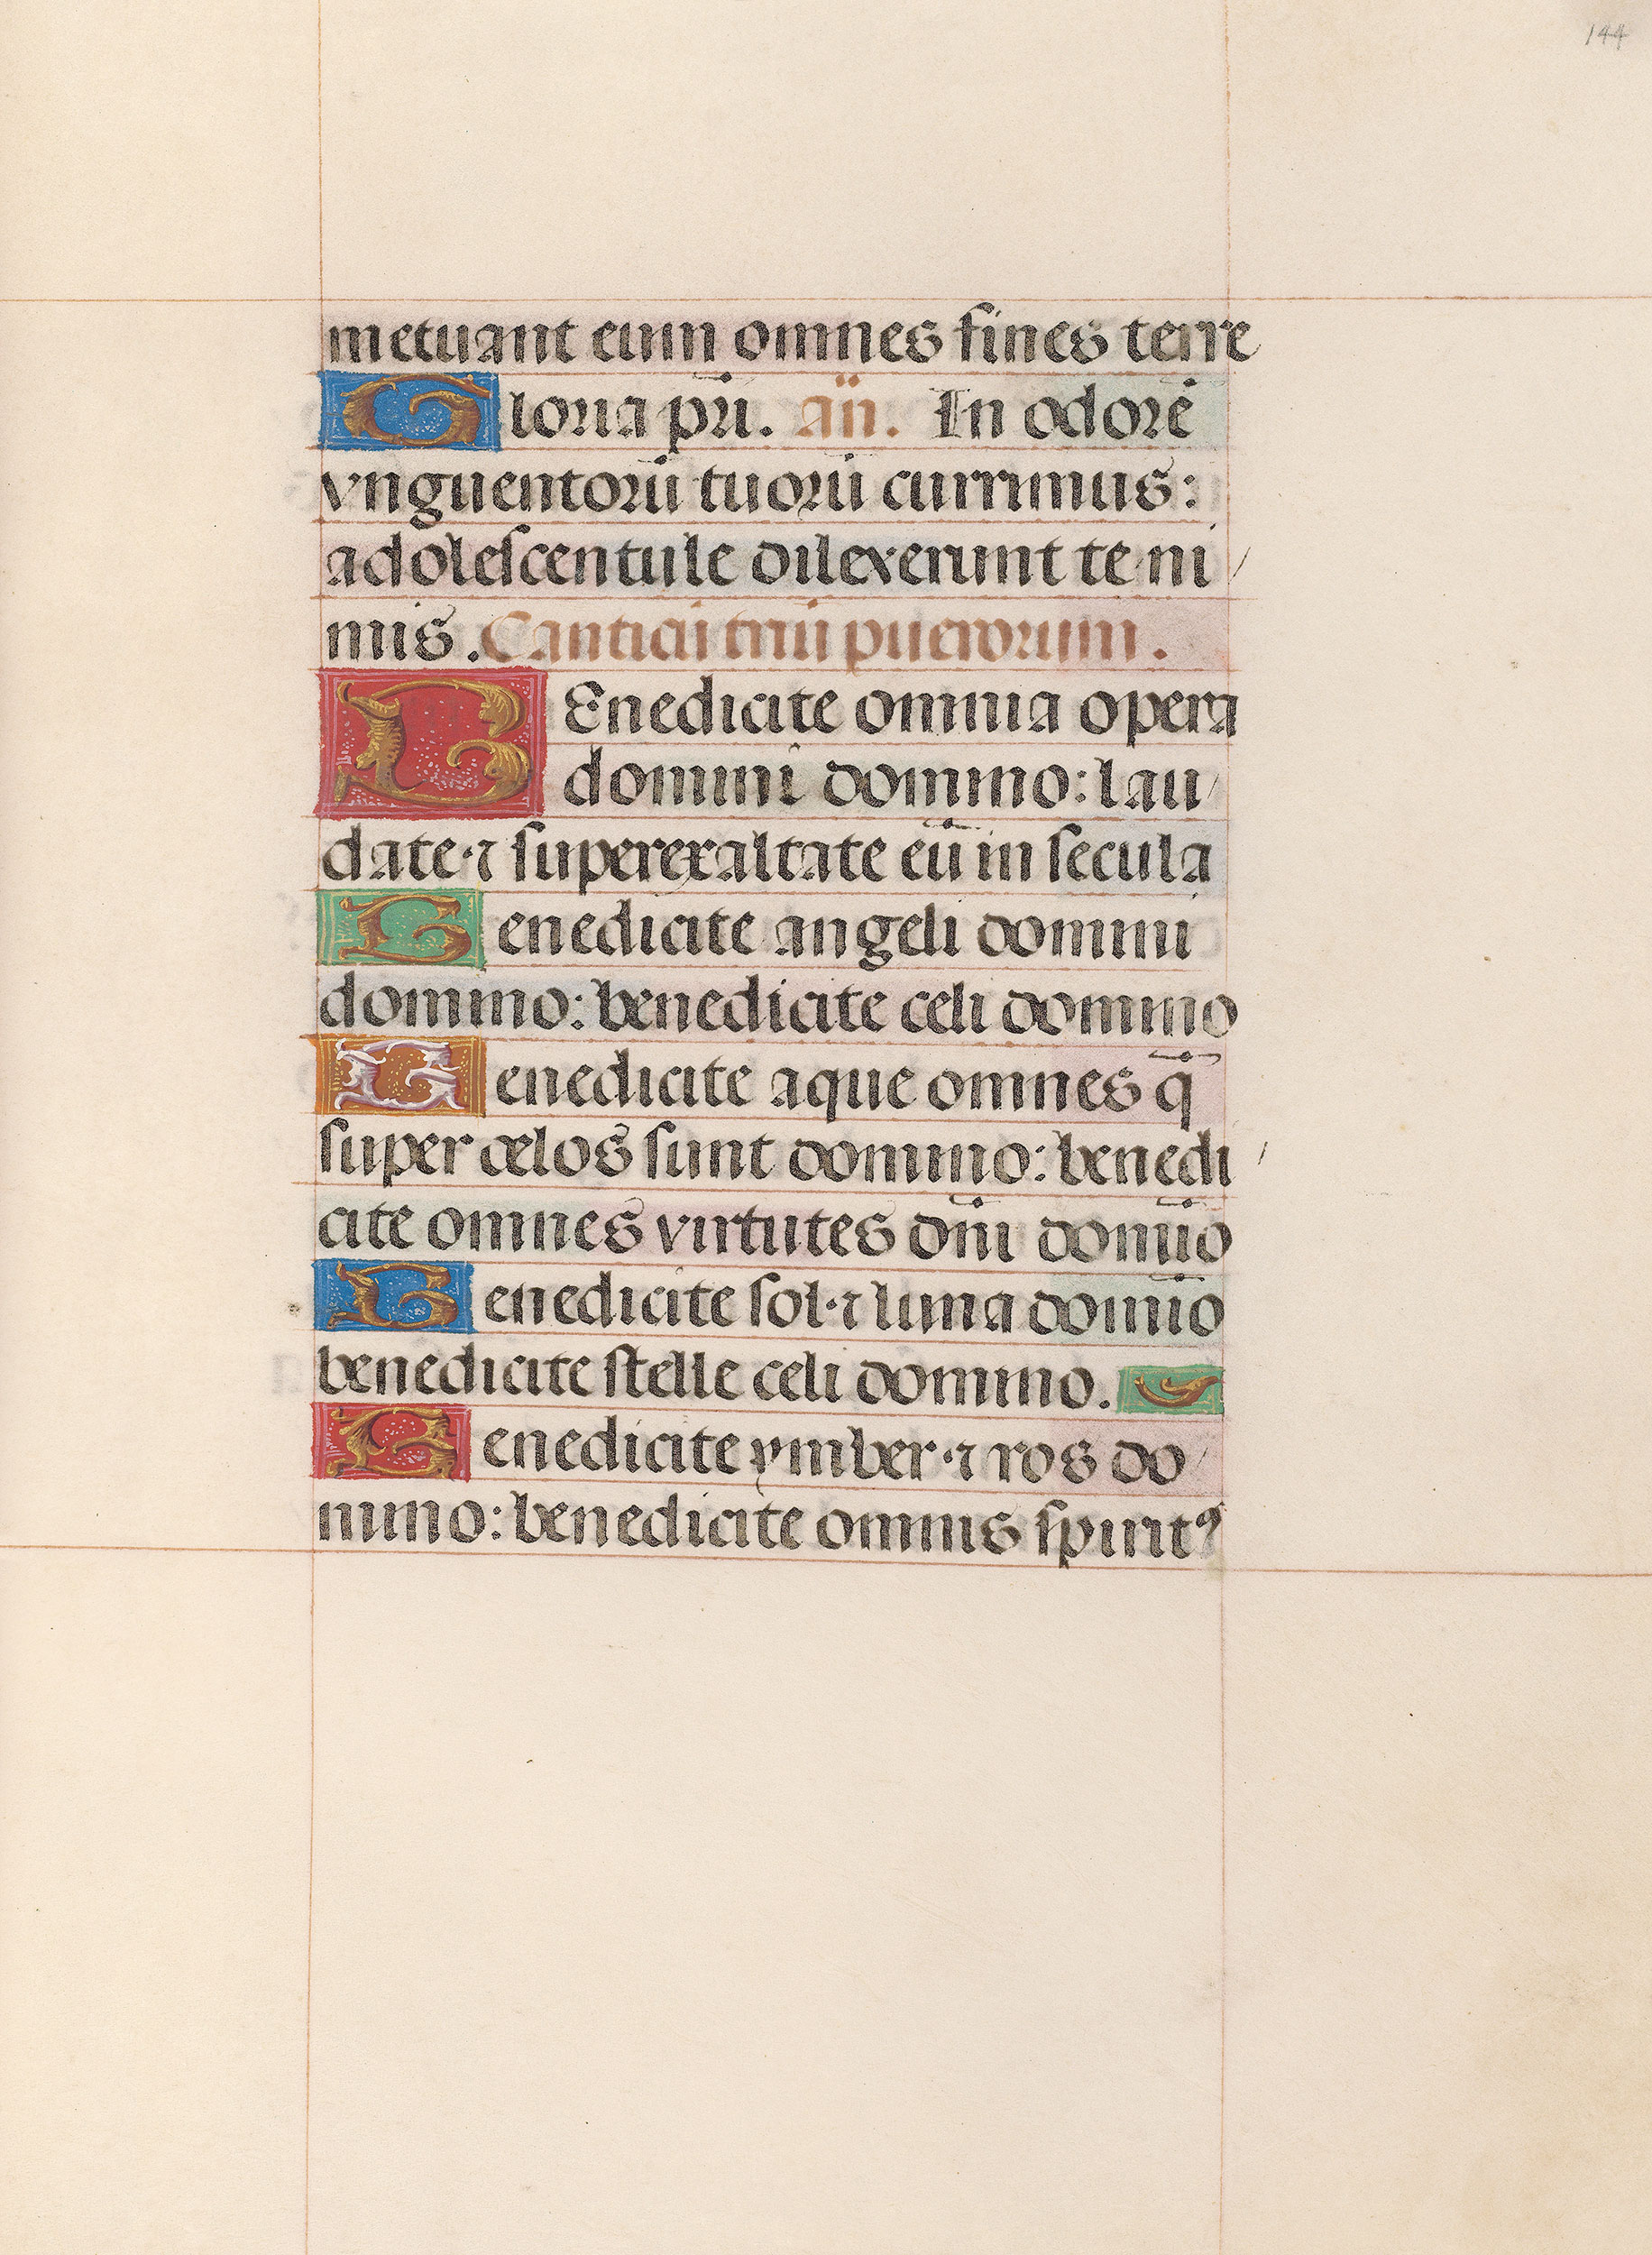 144
metuant eum omnes fines terre
Gloria pr̄i. an̄. In odorē
vnguentorū tuorū currimus:
adolescentule dilexerunt te ni/
mis. Cantic̄ triū puerorum.
BEnedicite omnia opera
domini domino: lau/
date ⁊ superexaltate eū in secula
Benedicite angeli domini
domino: benedicite celi domino
Benedicite aque omnes q̄
super celos sunt domino: benedi/
cite omnes virtutes dn̄i domīo
Benedicite sol ⁊ luna domīo
benedicite stelle celi domino.
Benedicite ymber ⁊ ros do/
mino: benedicite omnis spiritꝰ